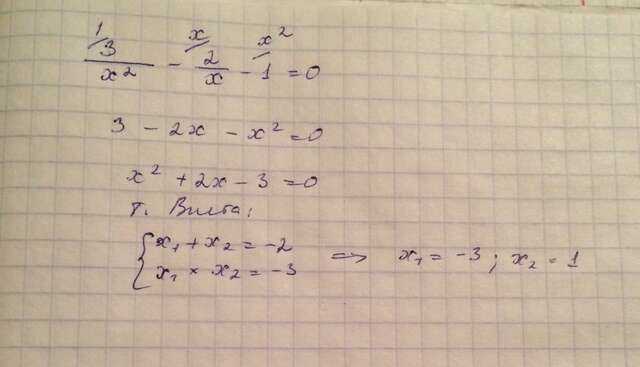 1 x x²
3/x² - 2/x - 1 = 0
3 - 2x - x² = 0
x² + 2x - 3 = 0
т. Виета:
{ x₁ + x₂ = -2
{ x₁ × x₂ = -3 => x₁ = -3; x₂ = 1